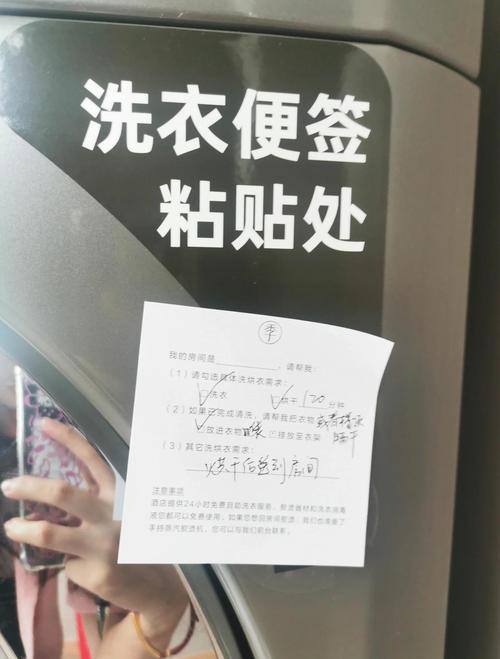 洗衣便签
粘贴处
季
我的房间是________,请帮我:
(1)请勾选具体洗烘衣需求:
洗衣 烘干 120 分钟
(2)如果已完成清洗,请帮我把衣物
放进衣物袋 挂放至衣架
(3)其它洗烘衣需求:
烘干后 到房间
注意事项
酒店提供24小时免费自助洗衣服务,熨烫器材和洗衣消毒
液您都可以免费使用,如果您想回房间熨烫,我们也准备了
手持蒸汽熨烫机,您可以与我们前台联系。